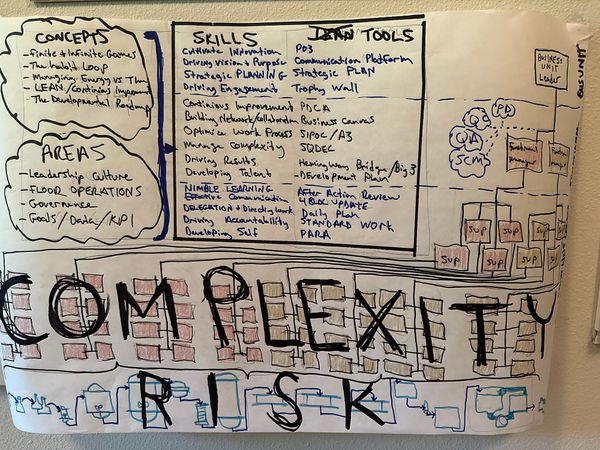 CONCEPTS
- Finite & Infinite Games
- Managing Energy vs Time
- LEAN/Continious Improvement
- The Developmental Roadmap
AREAS
- Leadership Culture
- FLOOR OPERATIONS
- Governance
- Goals/Data/KPI
SKILLS LEAN TOOLS
Cultivate Innovation PO3
Driving Vision & Purpose Communication Platform
Strategic PLANNING Strategic PLAN
Driving Engagement Trophy Wall
Continious Improvement PDCA
Building Network/Collaboration Business Canvas
Optimize Work Process SIPOC/A3
Manage Complexity SQDEC
Driving Results Hemingway Bridge/Big 3
Developing Talent Development Plan
NIMBLE LEARNING After Action Review
Effective Communication 4 BLOC UPDATE
DELEGATION & Directing Work Daily Plan
Driving Accountability STANDARD WORK
Developing Self PARA
BUSINESS
UNIT
Leader
BUS UNIT
QS
PA
QA
SCM
Manager
SUP SUP SUP
SUP SUP SUP
COMPLEXITY
RISK